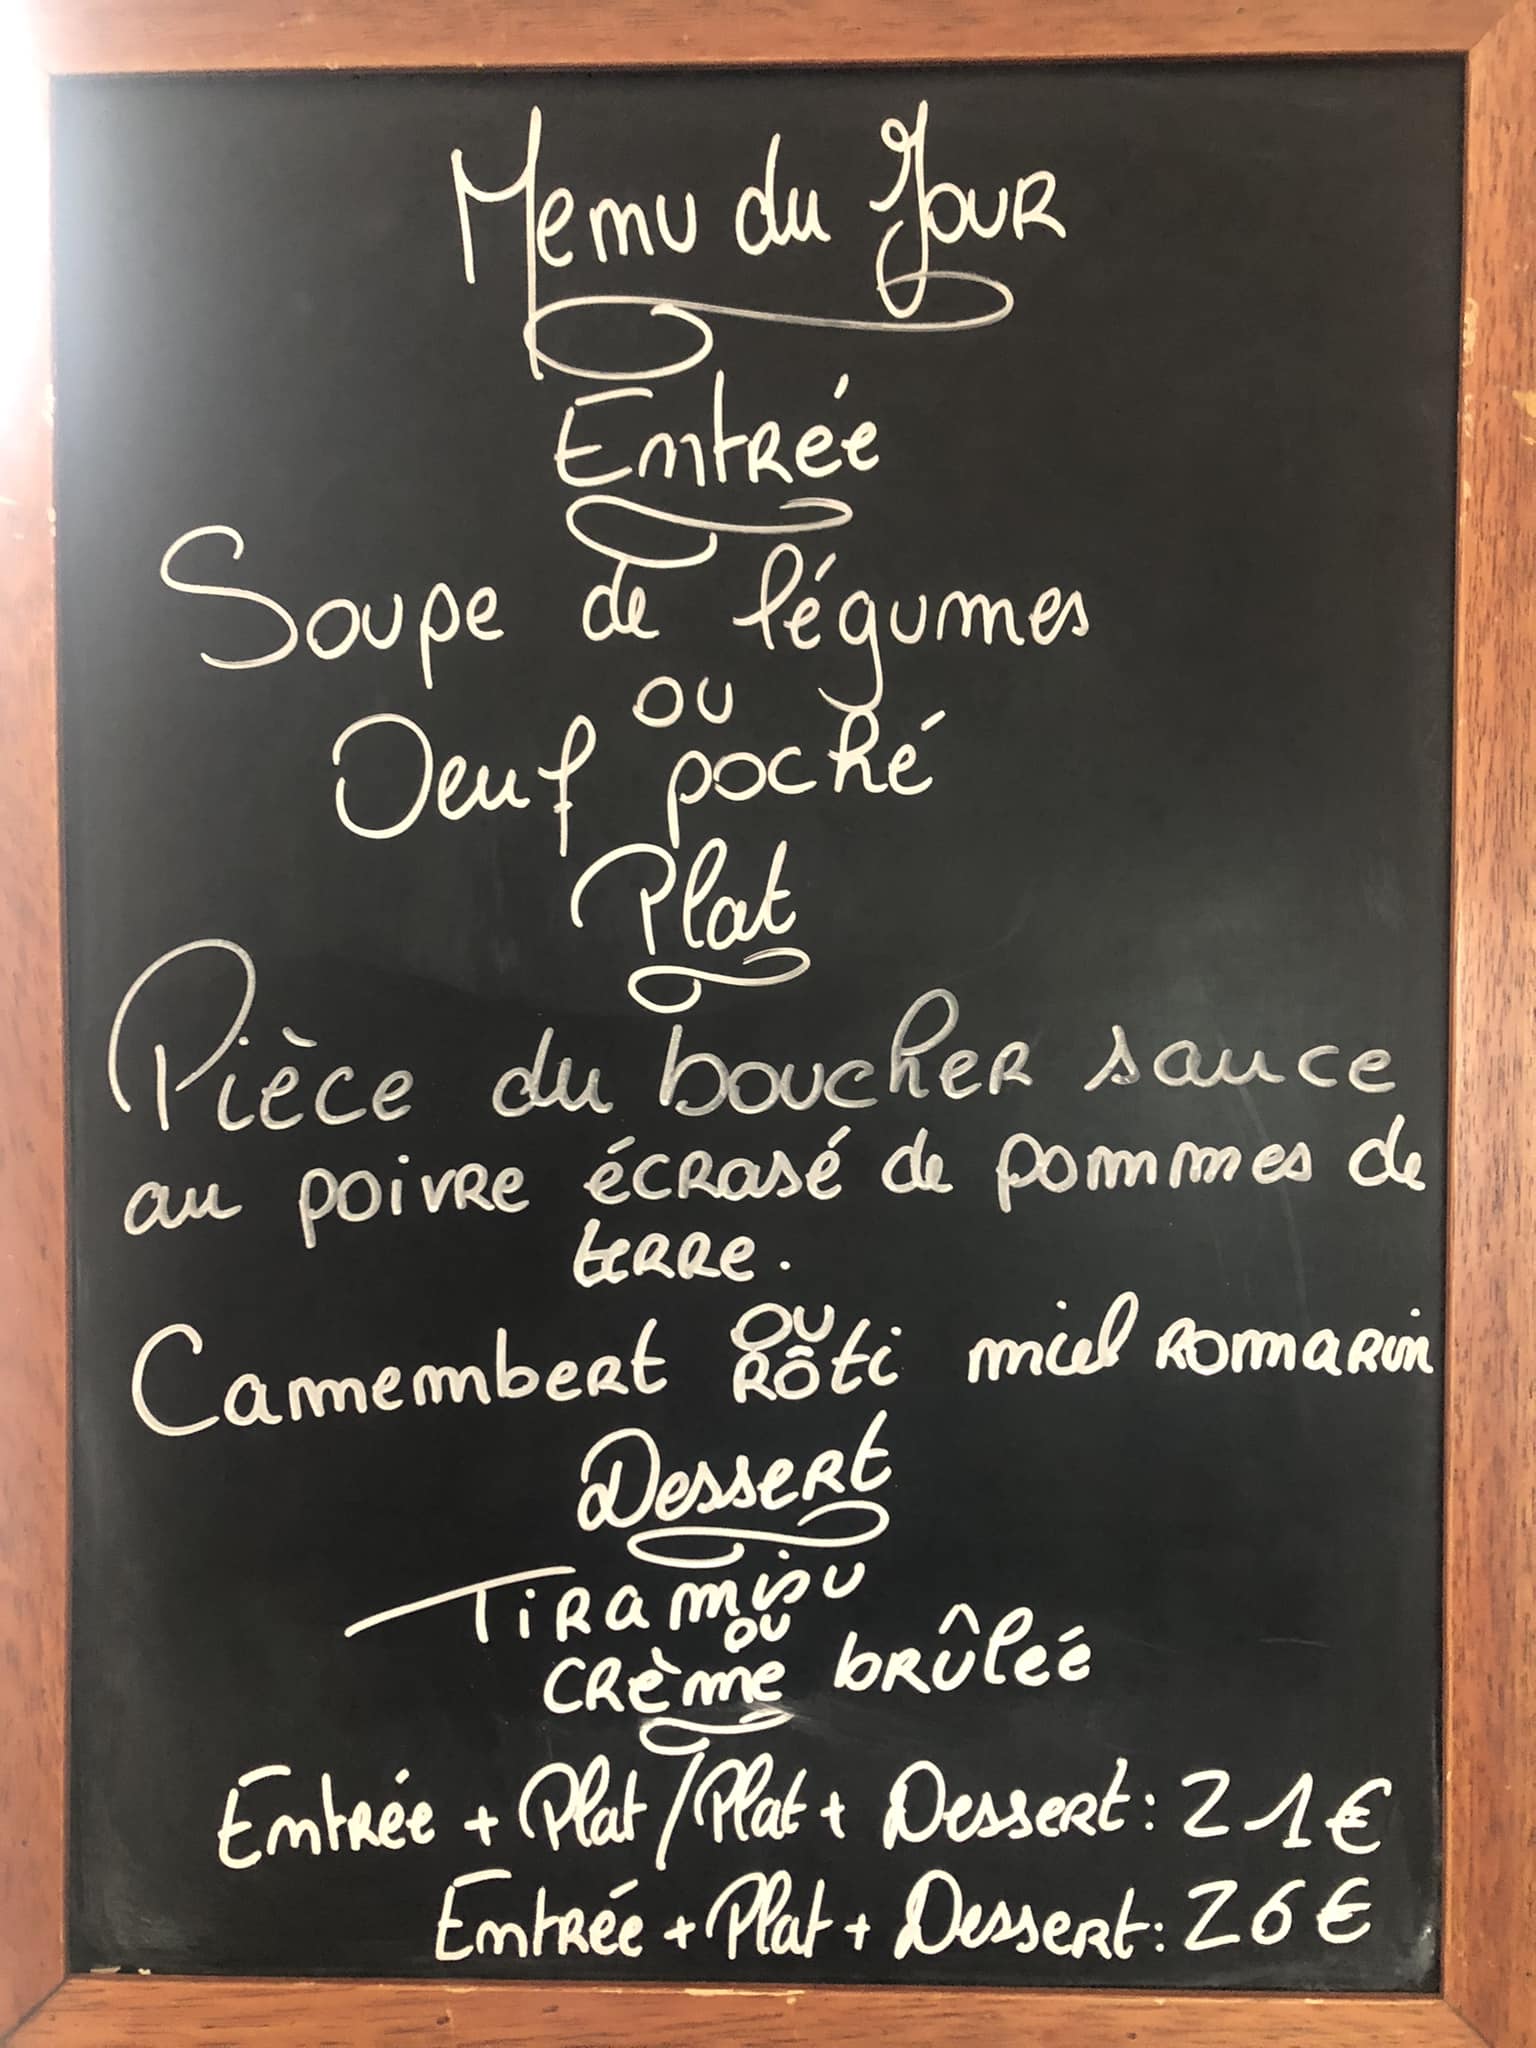 Menu du Jour
Entrée
Soupe de légumes
ou
Oeuf poché
Plat
Pièce du boucher sauce
au poivre écrasé de pommes de
terre.
ou
Camembert rôti miel romarin
Dessert
Tiramisu
ou
crème brûlée
Entrée + Plat / Plat + Dessert : 21€
Entrée + Plat + Dessert : 26€